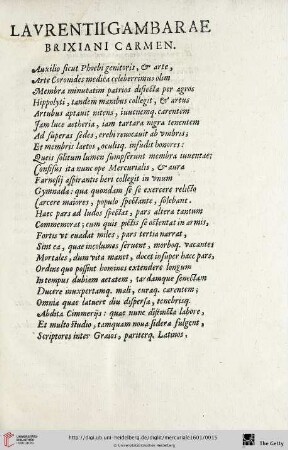 LAVRENTII GAMBARAE
BRIXIANI CARMEN.
Auxilio sicut Phoebi genitoris, & arte,
Arte Coronides medica celeberrimus olim
Membra minutatim patrios disiecta per agros
Hippolyti, tandem manibus collegit, & artus
Artubus aptauit nitens, iuuenemq. carentem
Iam luce aetheria, iam tartara nigra tenentem
Ad superas sedes, erebi reuocauit ab vmbris;
Et membris laetos, oculisq. infudit honores:
Queis solitum lumen sumpserunt membra iuuentae;
Confisus ita nunc ope Mercurialis, & aura
Farnesij aspirantis heri collegit in vnum
Gymnada: qua quondam se se exercere relicto
Carcere maiores, populo spectante, solebant.
Haec pars ad ludos spectat, pars altera tantum
Commemorat, cum quis pictis se ostentat in armis,
Fortis vt euadat miles, pars tertia narrat,
Sint ea, quae incolumes seruent, morboq. vacantes
Mortales, dum vita manet, docet insuper haec pars,
Ordine quo possint homines extendere longum
In tempus dubiam aetatem, tardamque senectam
Ducere inexpertamq. mali, curaq. carentem;
Omnia quae latuere diu dispersa, tenebrisq.
Abdita Cimmerijs: quae nunc distincta labore,
Et multo studio, tamquam noua sidera fulgent,
Scriptores inter Graios, pariterq. Latinos,
http://digi.ub.uni-heidelberg.de/diglit/mercuriale1601/0015
© Universitätsbibliothek Heidelberg
The Getty